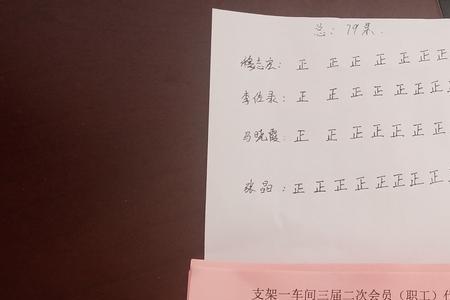 总：79票
修志宏：正 正 正 正 正 正 正 正
李佐录：正 正 正 正 正 正 正 正
马晓霞：正 正 正 正 正 正 正 正
张晶：正 正 正 正 正 正 正 正
支架一车间三届二次会员（职工）代